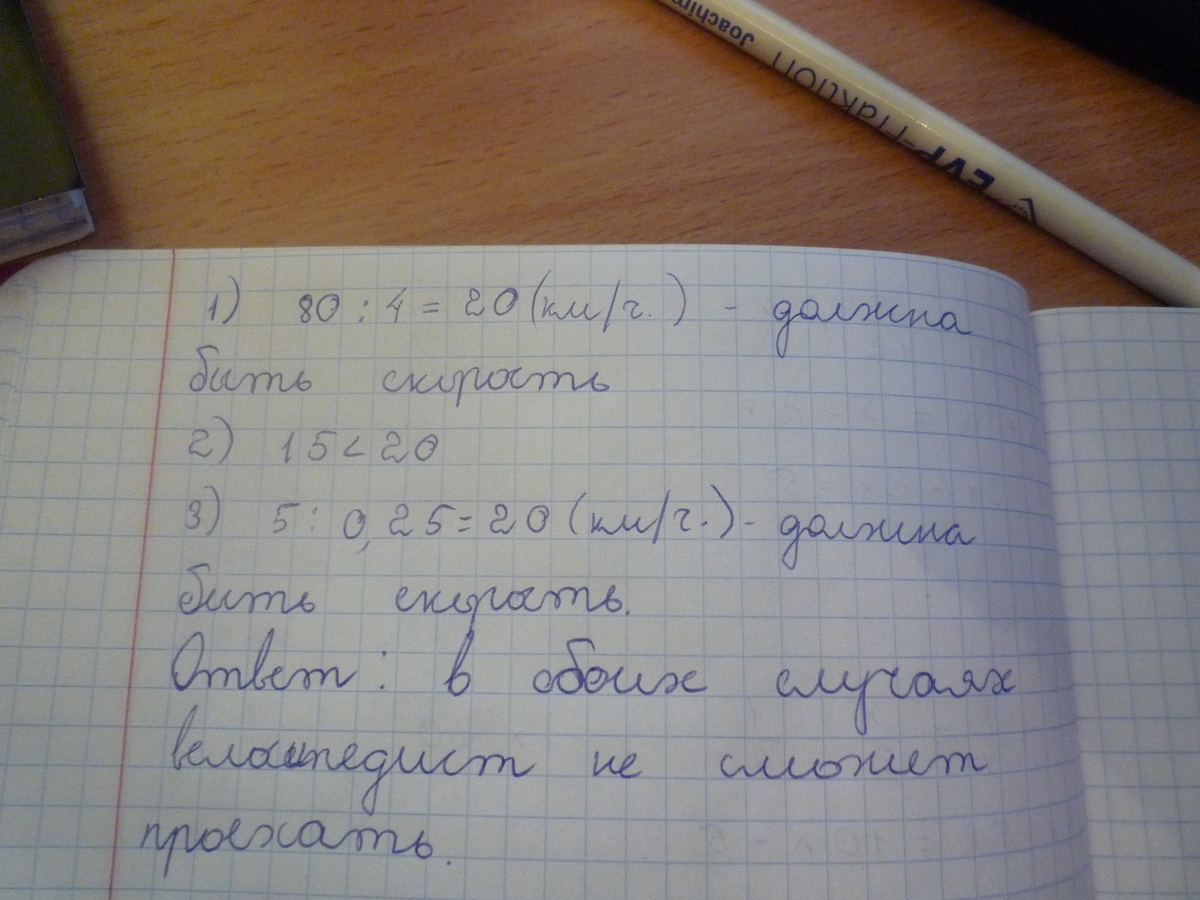 Joachim
EVP-Fraktion
1) 80 : 4 = 20 (км/г.) - должна
быть скорость
2) 15 < 20
3) 5 : 0,25 = 20 (км/г.) - должна
быть скорость.
Ответ: в обоих случаях
велосипедист не сможет
проехать.